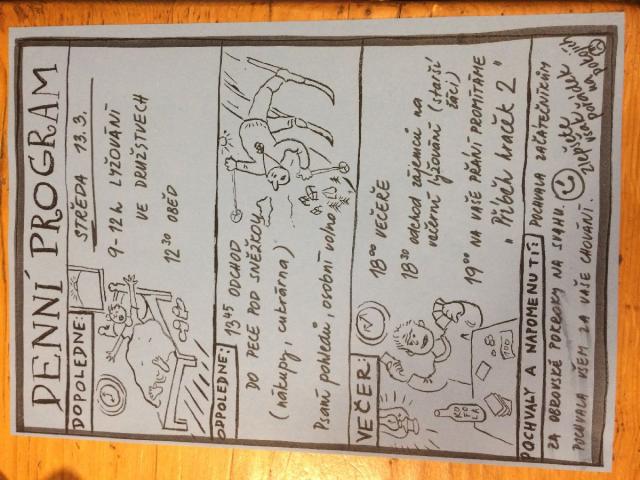 DENNÍ PROGRAM
DOPOLEDNE:
STŘEDA 13.3.
9-12h LYŽOVÁNÍ
VE DRUŽSTVECH
12³⁰ OBĚD
ODPOLEDNE:
13⁴⁵ ODCHOD
DO PECE POD SNĚŽKOU
(nákupy, cukrárna)
Psaní pohledů, osobní volno
VEČER:
18⁰⁰ VEČEŘE
18³⁰ odchod zájemců na
večerní lyžování (starší
žáci)
19⁰⁰ NA VAŠE PŘÁNÍ PROMÍTÁME
„Příběh hraček 2"
KOFOLA
100
POCHVALY A NAPOMENUTÍ:
POCHVALA ZAČÁTEČNÍKŮM
ZA OBROVSKÉ POKROKY NA SVAHU.
POCHVALA VŠEM ZA VAŠE CHOVÁNÍ.
zlepšete
však pořádek
na pokojích